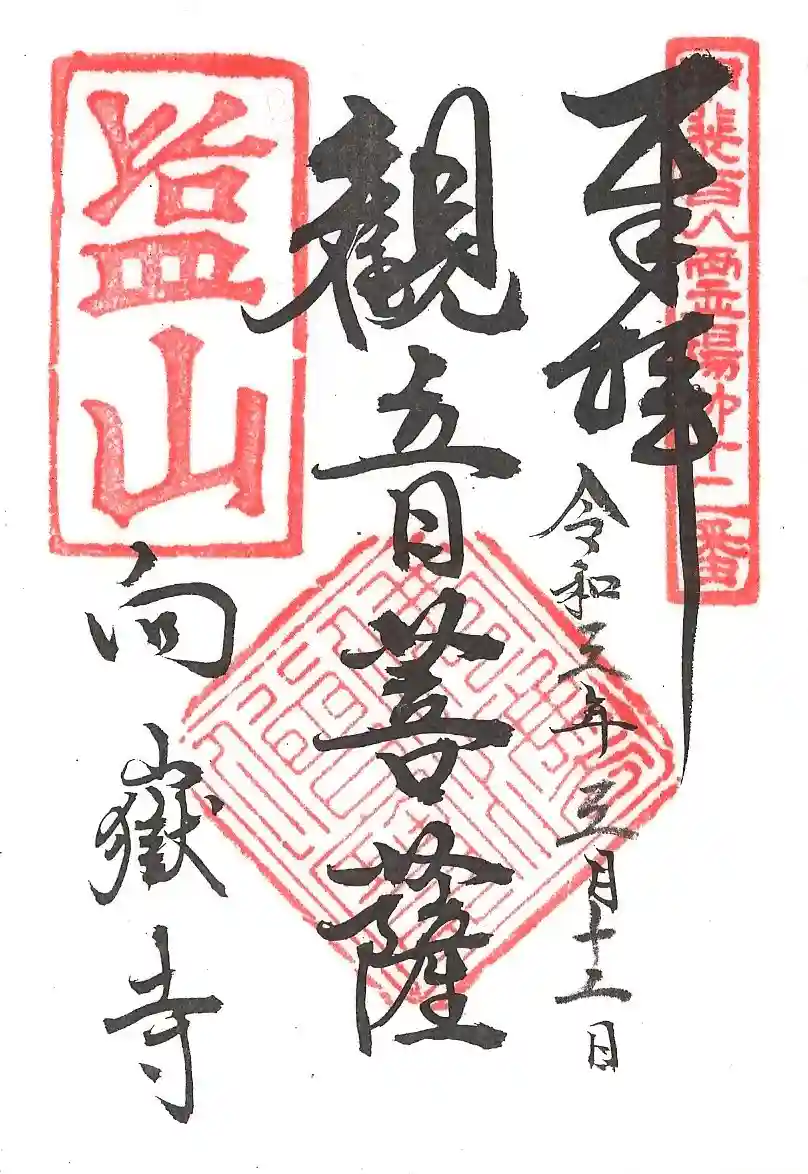 甲斐百八霊場第十二番
奉拝
令和三年三月十二日
観音菩薩
塩山
向嶽寺